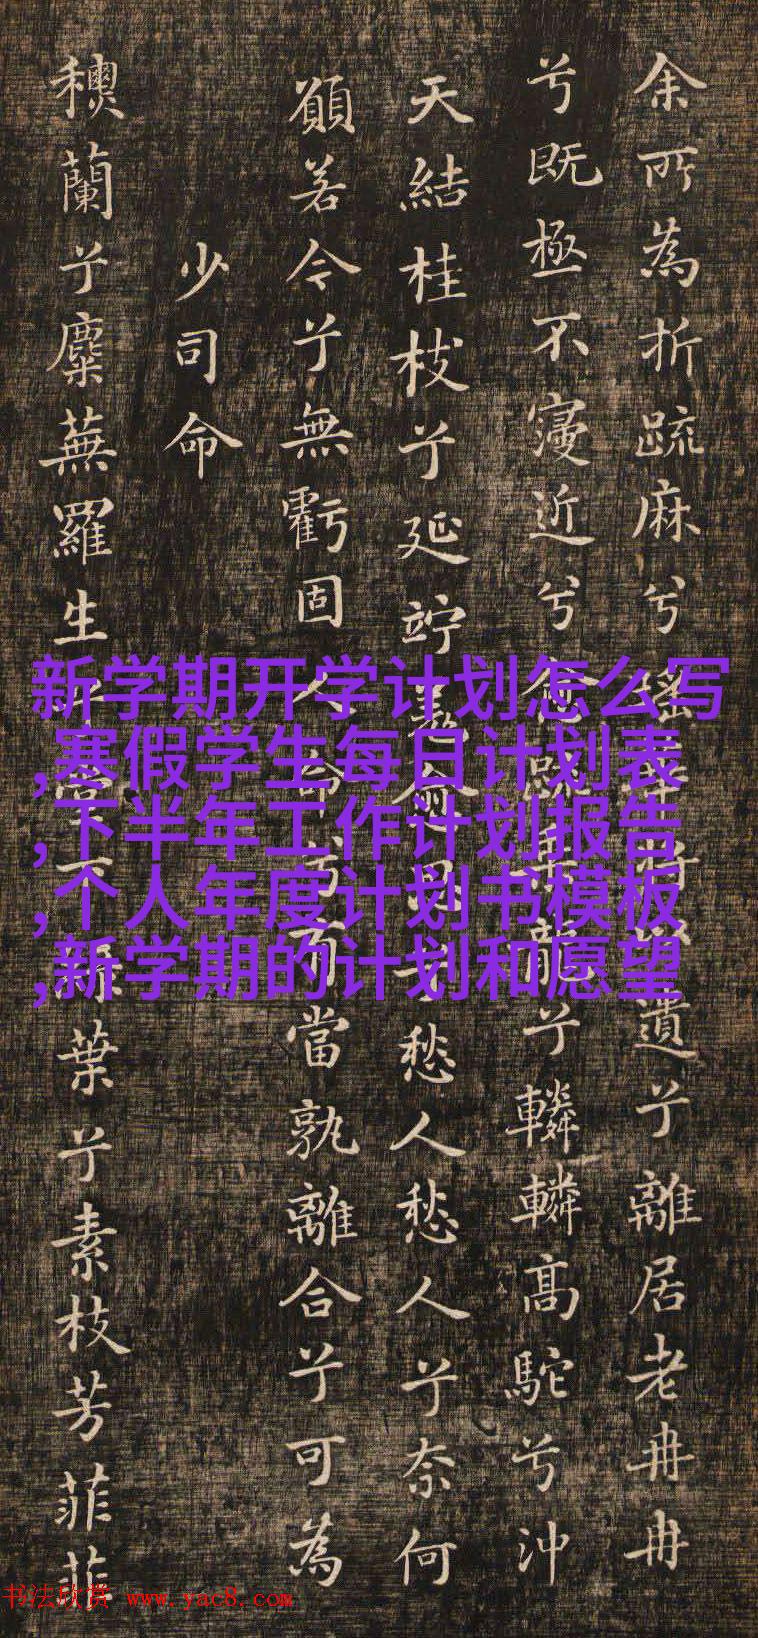 余所為折疏麻兮瑤華將以遺兮離居老冉冉
兮既極不寖近兮愈疏乘龍兮轔轔高駝兮沖
天結桂枝兮延竚羌愈思兮愁人愁人兮奈何
願若今兮無虧固人命兮有當孰離合兮可為
少司命
穠蘭兮麋蕪羅生兮堂下綠葉兮素枝芳菲菲
新学期开学计划怎么写
,寒假学生每日计划表
,下半年工作计划报告
,个人年度计划书模板
,新学期的计划和愿望
书法欣赏 www.yac8.com